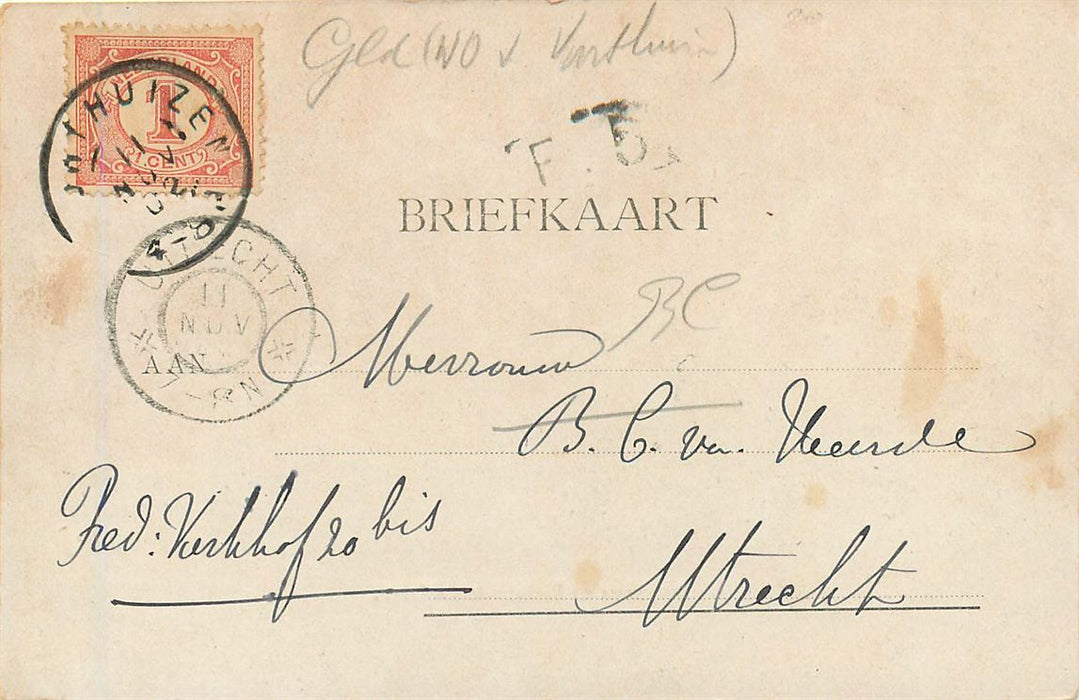 Geld (NO v Vorthuizen)
NEDERLAND
1
CENT
F. 5
BRIEFKAART
BC
UTRECHT
11
NOV
AAN
7-8N
Mevrouw
B. C. van Heerde
Fred: Kerkhof 20 bis
Utrecht